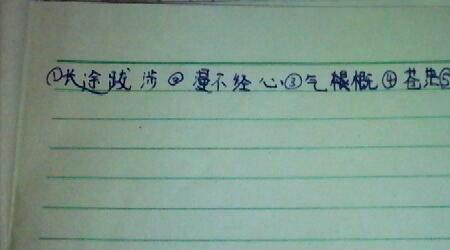 ①长途跋涉②漫不经心③气概④苍⑤